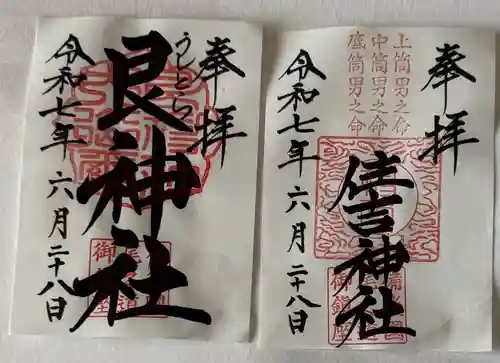 奉拝
うしとら
艮神社
令和七年 六月二十八日
奉拝
上筒男之命
中筒男之命
底筒男之命
住吉神社
令和七年 六月二十八日